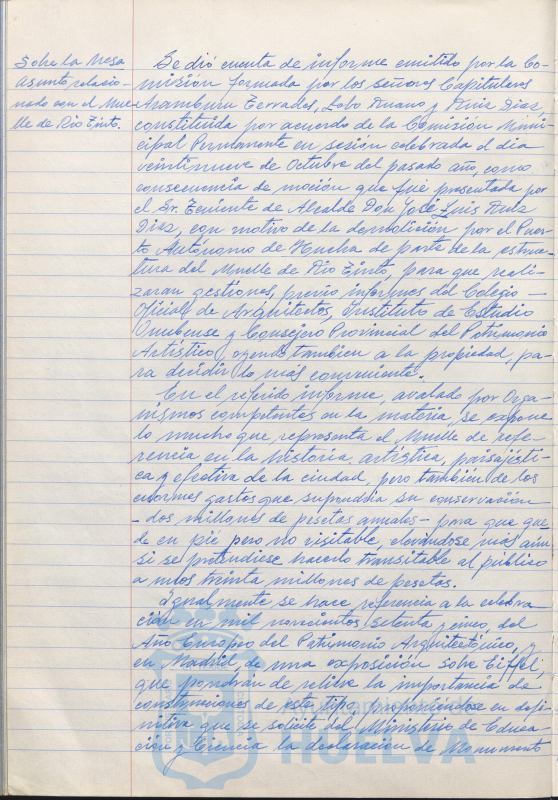 Sobre la Mesa
asunto relacio-
nado con el Mue-
lle de Rio Tinto.
Se dió cuenta de informe emitido por la Co-
misión formada por los señores Capitulares
Aramburu Terrades, Lobo Ruano y Ruiz Diaz
constituida por acuerdo de la Comisión Muni-
cipal Permanente en sesión celebrada el dia
veintinueve de Octubre del pasado año, como
consecuencia de moción que fué presentada por
el Sr. Teniente de Alcalde Don José Luis Ruiz
Diaz, con motivo de la demolición por el Puer-
to Autónomo de Huelva de parte de la estruc-
tura del Muelle de Rio Tinto, para que reali-
zaran gestiones, previo informes del Colegio -
Oficial de Arquitectos, Instituto de Estudio
Onubense y Consejero Provincial del Patrimonio
Artístico, oyendo tambien a la propiedad, pa-
ra decidir lo más conveniente.
En el referido informe, avalado por Orga-
nismos competentes en la materia, se expone
lo mucho que representa el Muelle de refe-
rencia en la historia, artística, paisajisti-
ca y efectiva de la ciudad, pero también de los
enormes gastos que supondria su conservación
- dos millones de pesetas anuales - para que que-
de en pié pero no visitable, elevándose más aún
si se pretendiese hacerlo transitable al público
a unos treinta millones de pesetas.
Igualmente se hace referencia a la celebra
ción en mil novecientos setenta y cinco, del
Año Europeo del Patrimonio Arquitectónico, y
en Madrid, de una exposición sobre Eiffel,
que pondrán de relieve la importancia de
construcciones de este tipo, proponiéndose en defi-
nitiva que se solicite del Ministerio de Educa
ción y Ciencia la declaración de Monumento
HUELVA